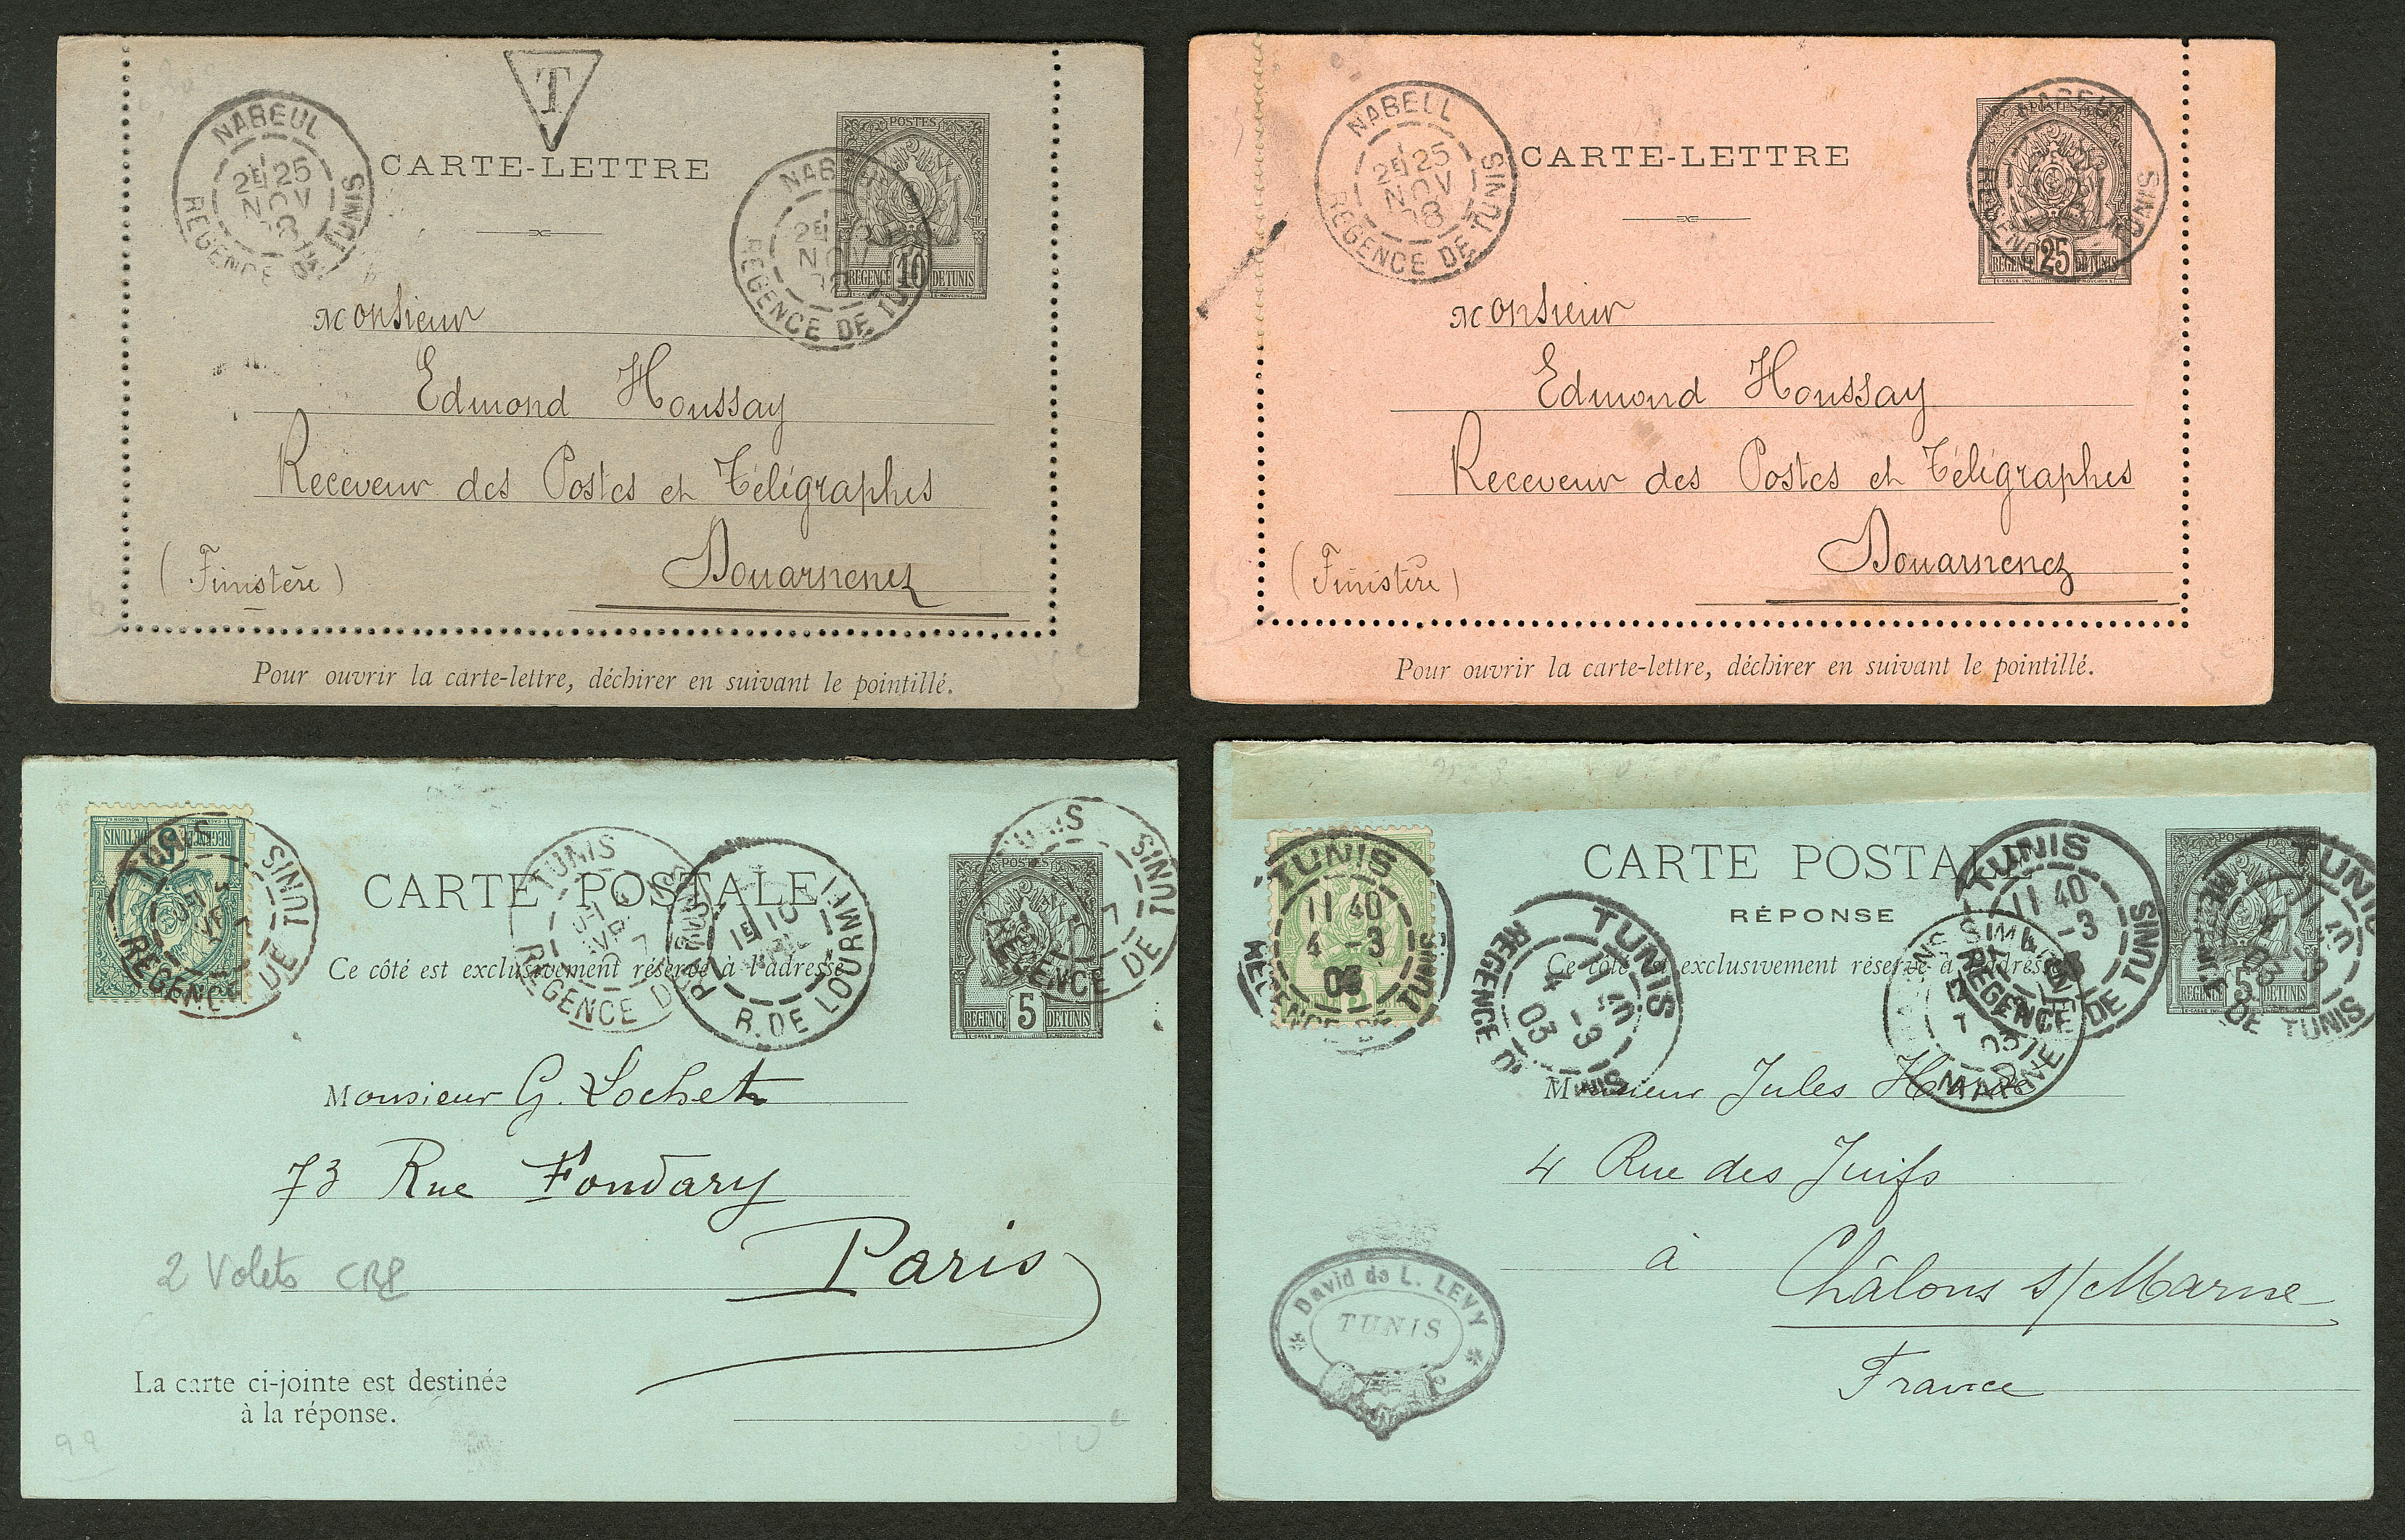 T
NABEUL
2E 25
NOV
REGENCE DE TUNIS
CARTE-LETTRE
POSTES
REGENCE 10 DE TUNIS
2E
NOV
REGENCE DE
Monsieur
Edmond Houssay
Receveur des Postes et Télégraphes
Douarnenez
(Finistère)
Pour ouvrir la carte-lettre, déchirer en suivant le pointillé.
NABEUL
2E 25
NOV
98
REGENCE DE TUNIS
CARTE-LETTRE
POSTES
REGENCE 25 DE TUNIS
Monsieur
Edmond Houssay
Receveur des Postes et Télégraphes
Douarnenez
(Finistère)
Pour ouvrir la carte-lettre, déchirer en suivant le pointillé.
REGENCE 5 DE TUNIS
TUNIS
REGENCE DE TUNIS
CARTE POSTALE
TUNIS
REGENCE DE TUNIS
PARIS
1E 10
AVRIL
R. DE LOURMEL
POSTES
REGENCE 5 DE TUNIS
TUNIS
REGENCE DE TUNIS
Ce côté est exclusivement réservé à l'adresse
Monsieur G. Lochet
73 Rue Fondary
Paris
2 Volets CRP
La carte ci-jointe est destinée
à la réponse.
99
CARTE POSTALE
RÉPONSE
Ce côté est exclusivement réservé à l'adresse
TUNIS
11 40
4 -3
03
REGENCE DE TUNIS
TUNIS
11 40
4 -3
03
REGENCE DE TUNIS
TUNIS
11 40
-3
REGENCE DE TUNIS
MARNE
POSTES
REGENCE 5 DE TUNIS
TUNIS
REGENCE DE TUNIS
Monsieur Jules
4 Rue des Juifs
à Châlons s/Marne
France
David de L. LEVY
TUNIS